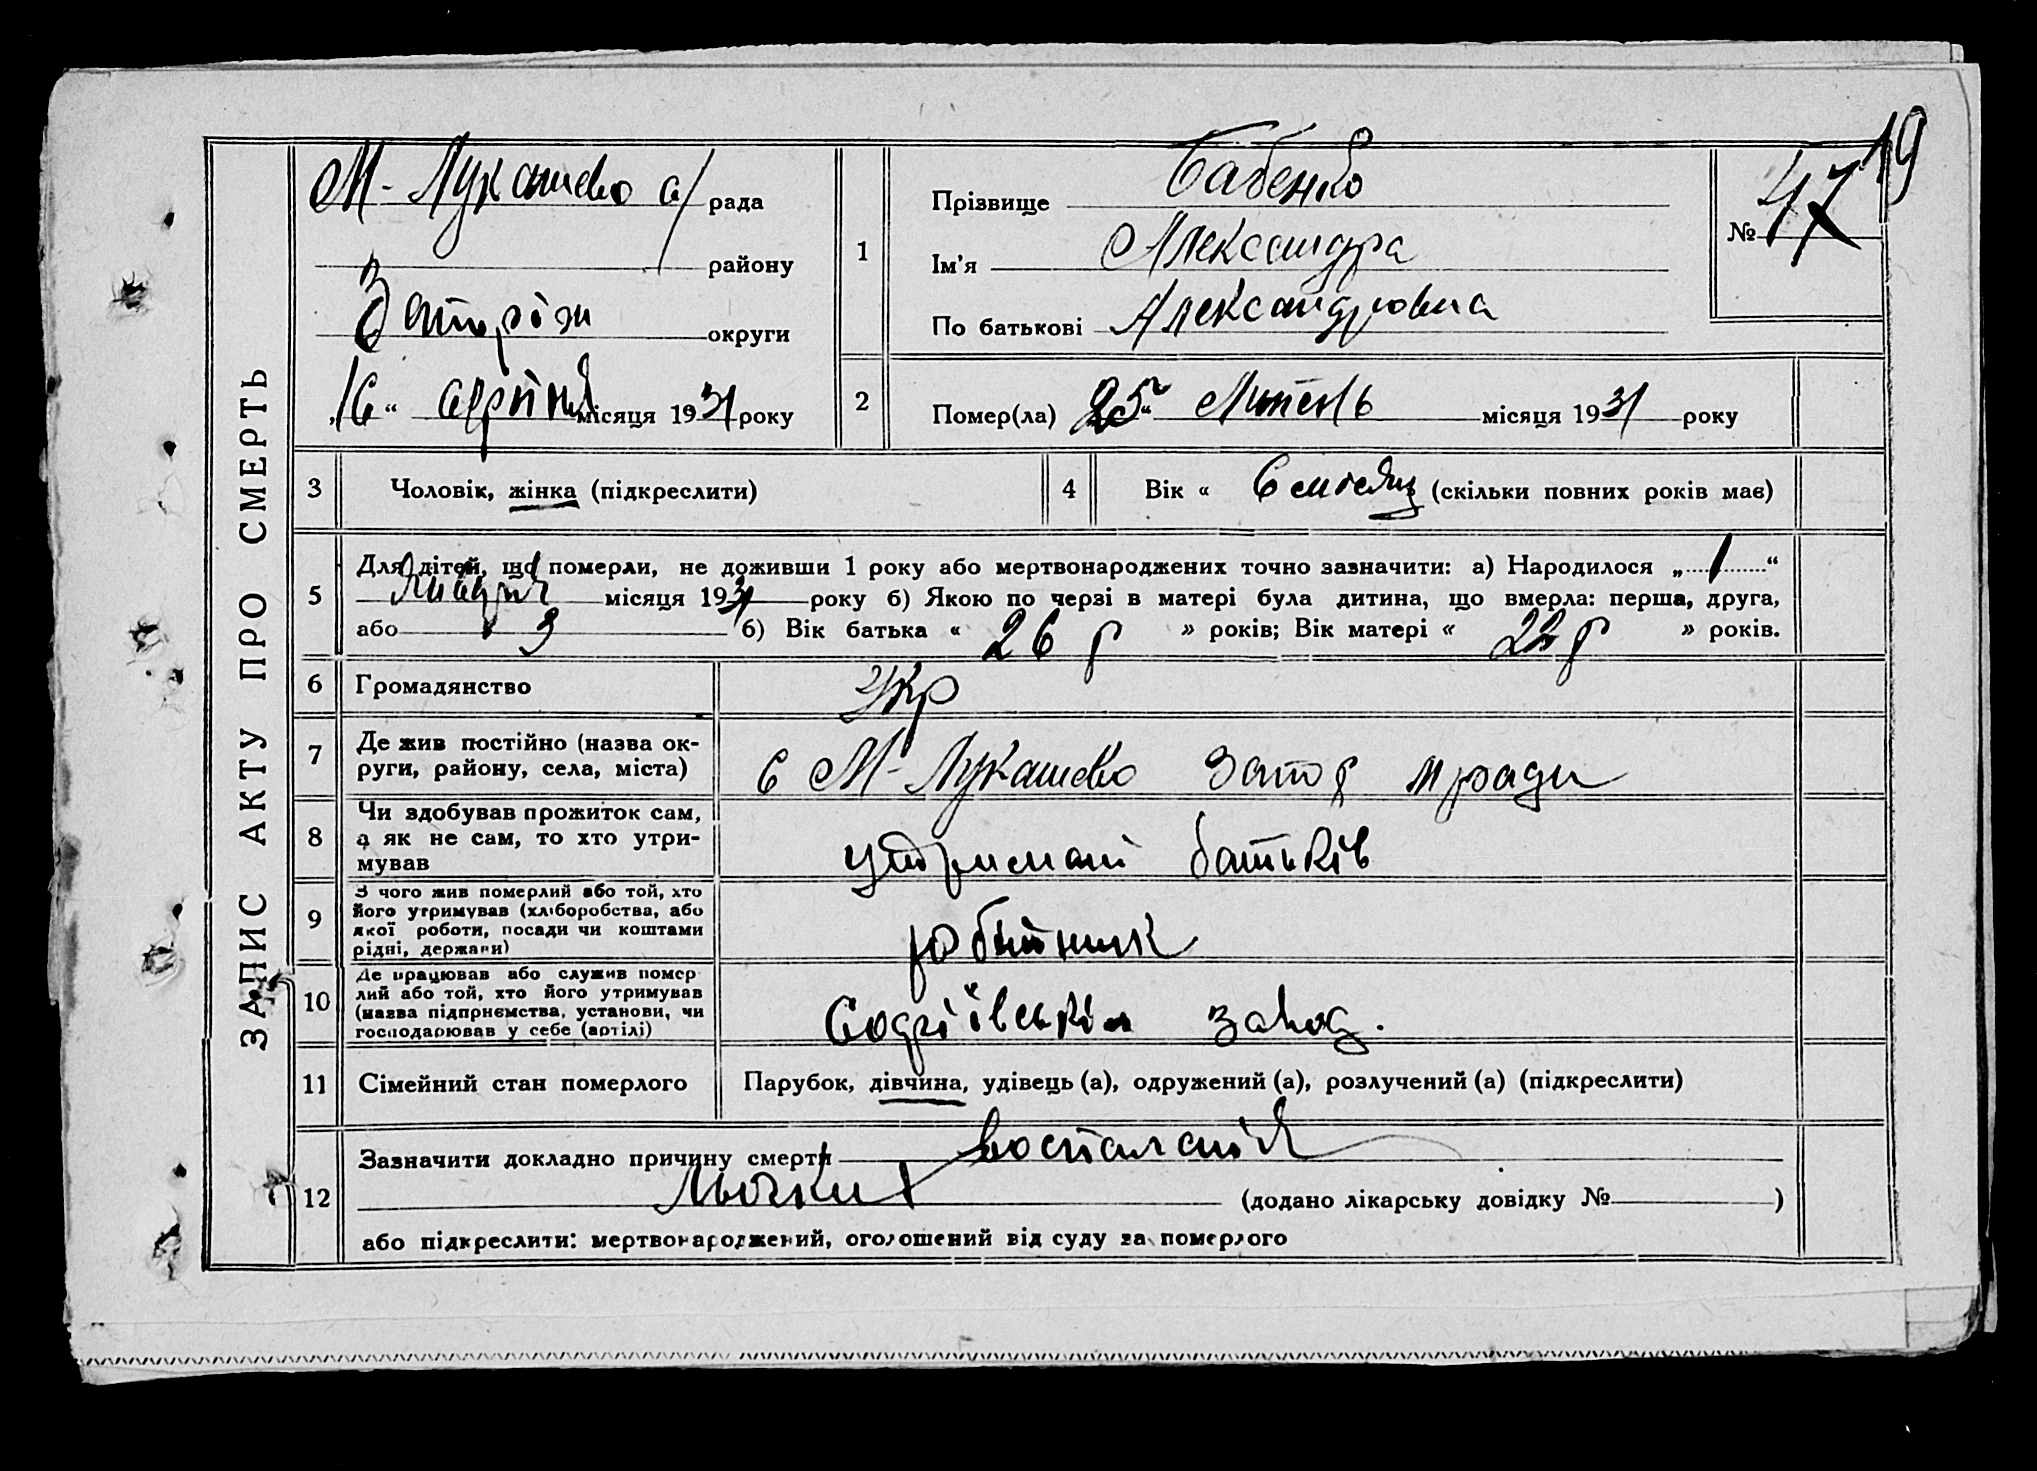 ЗАПИС АКТУ ПРО СМЕРТЬ
19
М-Лукашево с/рада
району
Запоріж округи
„16“ серпня місяця 1931 року
1
Прізвище Бабенко
Ім'я Александра
По батькові Александровна
№ 47
2
Помер(ла) 25“ Липень місяця 1931 року
3 Чоловік, жінка (підкреслити)
4 Вік « 6 месяц (скільки повних років має)
5 Для дітей, що померли, не доживши 1 року або мертвонароджених точно зазначити: а) Народилося „1“
Января місяця 1931 року б) Якою по черзі в матері була дитина, що вмерла: перша, друга,
або 3 б) Вік батька « 26 р » років; Вік матері « 22 р » років.
6 Громадянство Укр
7 Де жив постійно (назва ок-
руги, району, села, міста) с М-Лукашево Запор
8 Чи здобував прожиток сам,
а як не сам, то хто утри-
мував батьків
9 З чого жив померлий або той, хто
його утримував (хліборобства, або
якої роботи, посади чи коштами
рідні, держави) робітник
10 Де працював або служив помер
лий або той, хто його утримував
(назва підприємства, установи, чи
господарював у себе (артілі) завод.
11 Сімейний стан померлого Парубок, дівчина, удівець (а), одружений (а), розлучений (а) (підкреслити)
12 Зазначити докладно причину смерти воспаления
(додано лікарську довідку № )
або підкреслити: мертвонароджений, оголошений від суду за померлого